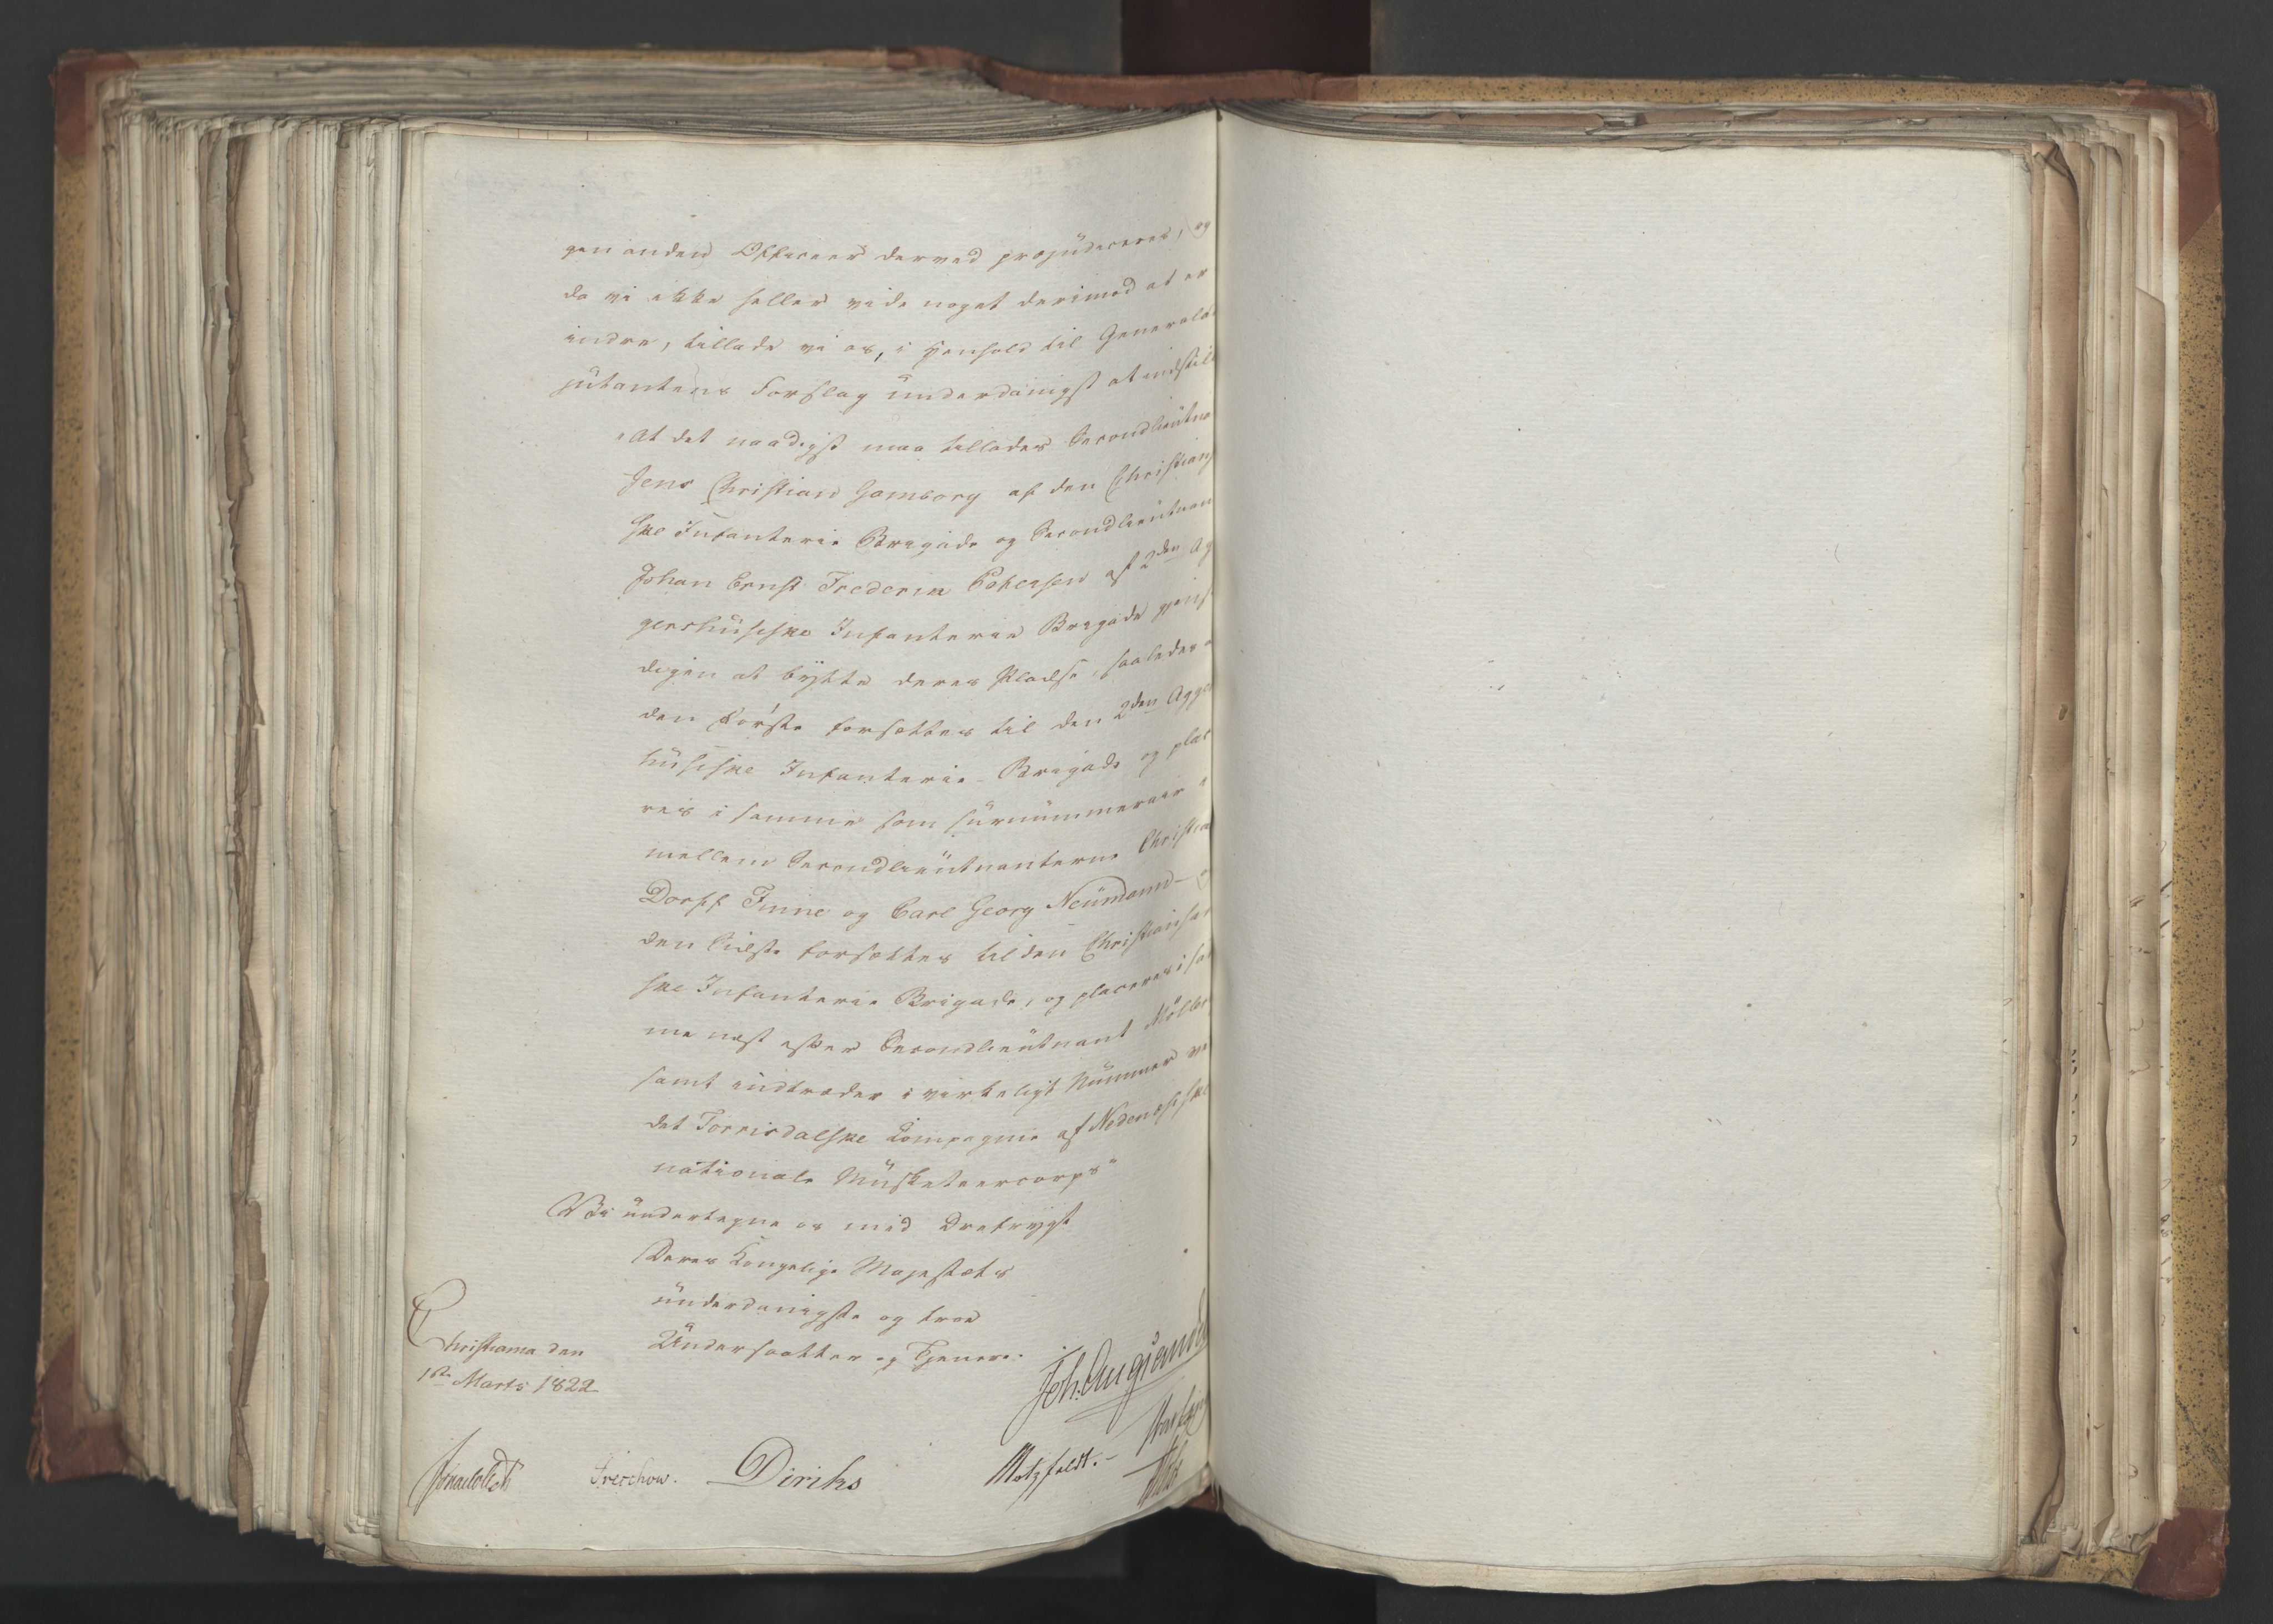 gen anden Officeer derved præjudiceres, og
da vi ikke heller vide noget derimod at er
indre, tillade vi os, i Henhold til Generalad
jutantens Forslag underdanigst at indstil
"At det naadigst maa tillades Secondlieutna
Jens Christian Gamborg af den Christians
ske Infanterie Brigade og Secondlieutnan
Johan Ernst Frederik Petersen af 2den Ag
gershusiske Infanterie Brigade gjens
digen at bytte deres Pladse, saaledes a
den Første forsættes til den 2den Agger
husiske Infanterie-Brigade og plac
res i samme som surnummerair i
mellem Secondlieutnanterne Christia
Dorph Finne og Carl Georg Neumann – o
den Sidste forsættes til den Christiansa
ske Infanterie Brigade, og placeres i sa
me næst efter Secondlieutnant Möller
samt indtræder i virkeligt Nummer ve
det Torrisdalske Compagnie af Nedenæsiske
nationale Musketeercorps"
Vi undertegne os med Dretrygst
Deres Kongelige Majestæts
underdanigste og troe
Undersaatter og Tjenere.
Christiania den
1ste Marts 1822
Treschow. Diriks Motzfeldt.–